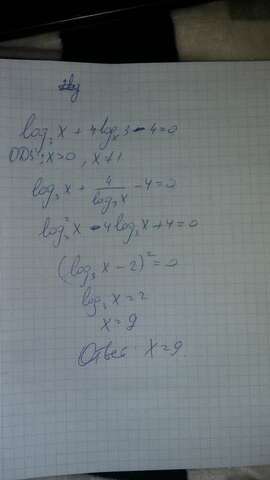 log₃ x + 4 logₓ 3 - 4 = 0
ОДЗ: x>0, x≠1
log₃ x + 4/log₃ x - 4 = 0
log₃² x - 4 log₃ x + 4 = 0
(log₃ x - 2)² = 0
log₃ x = 2
x = 9
Ответ: x = 9